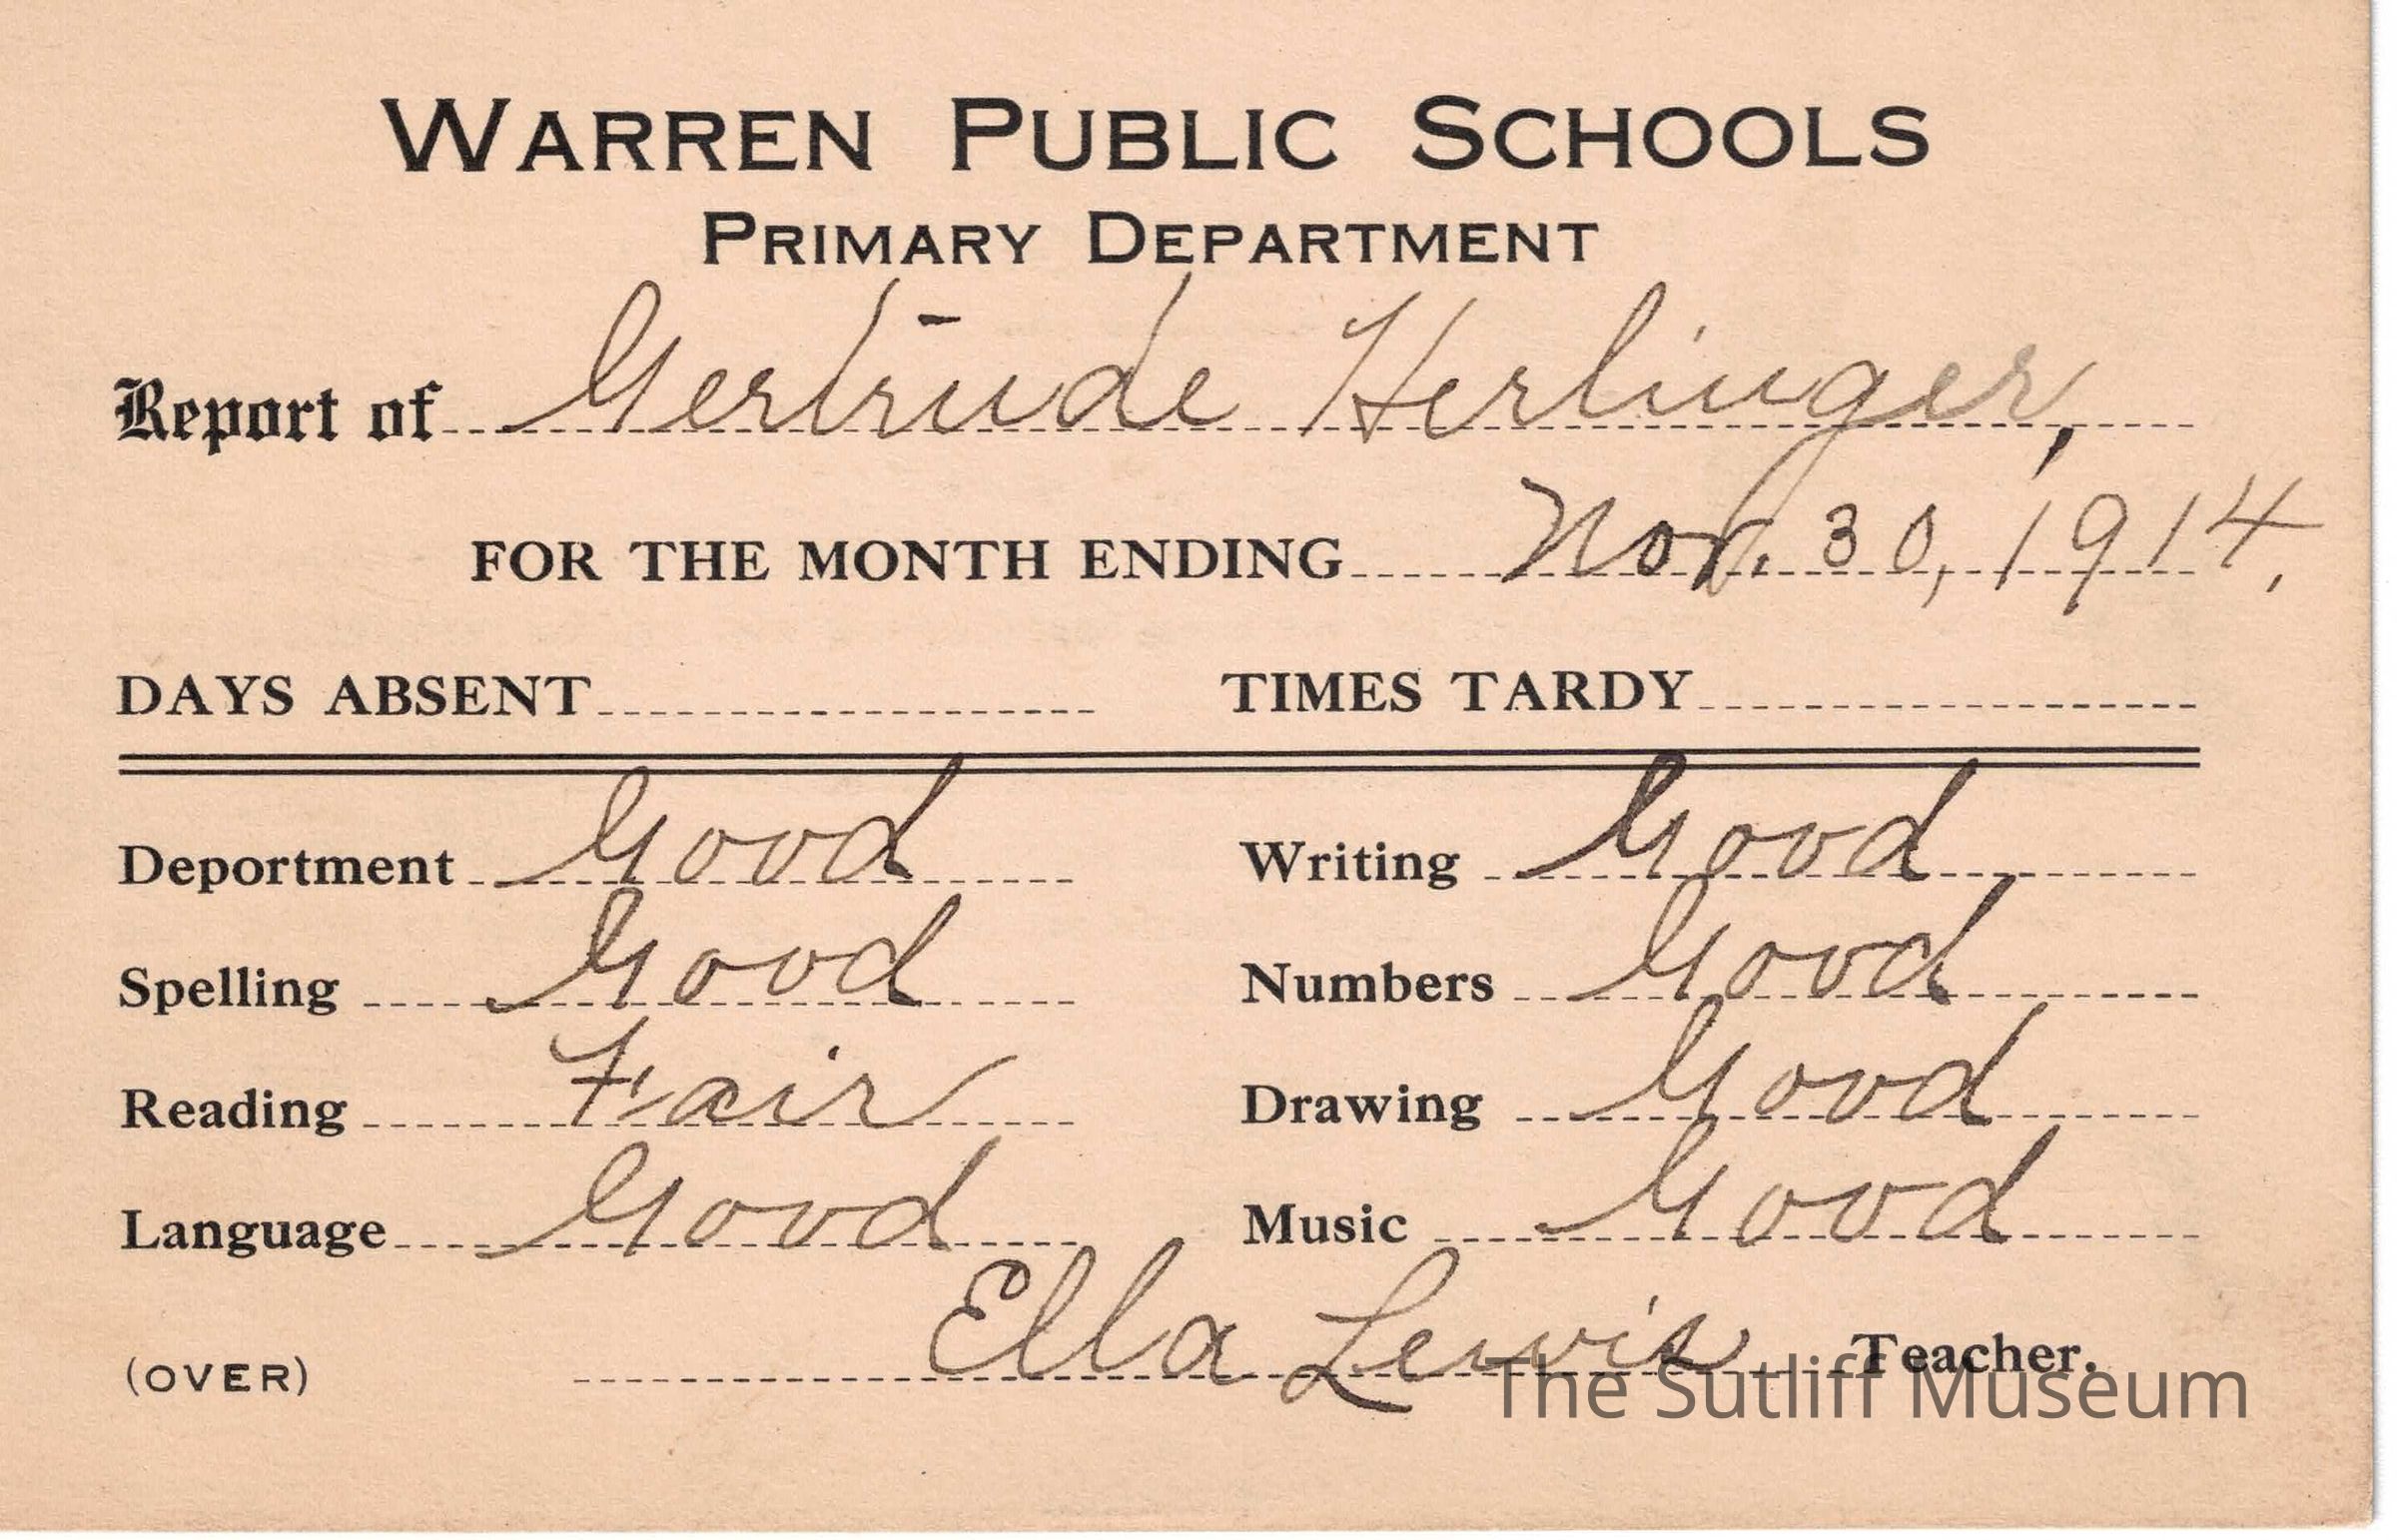 WARREN PUBLIC SCHOOLS
PRIMARY DEPARTMENT
Report of Gertrude Herlinger,
FOR THE MONTH ENDING Nov. 30, 1914.
DAYS ABSENT TIMES TARDY
Deportment Good Writing Good
Spelling Good Numbers Good
Reading Fair Drawing Good
Language Good Music Good
(OVER) Ella Lewis Teacher.
The Sutliff Museum